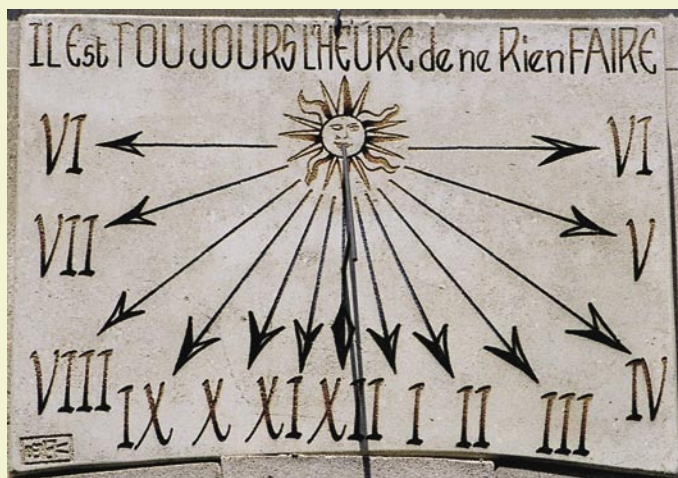 IL Est TOUJOURS L'HEURE de ne Rien FAIRE
VI VI
VII V
VIII IV
IX X XI XII I II III